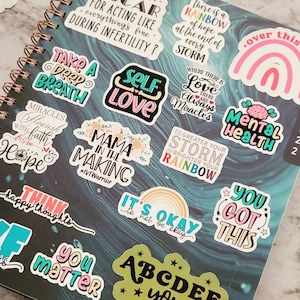 FOR ACTING LIKE
everything's fine
DURING INFERTILITY?
there is a
RAINBOW
of hope
at the end of
every
STORM
over this
TAKE A
DEEP
BREATH
SELF
LOVE
WHERE THERE IS
Love
there are
Always
Miracles
Mental
HEALTH
MIRACLES
start
with
faith
Hope
MAMA
IN
THE
MAKING
#IVFWarrior
THE GREATER YOUR
STORM
THE BRIGHTER YOUR
RAINBOW
THINK
happy thoughts
IT'S OKAY
to not be okay
YOU
GOT
THIS
you
matter
ABCDEF
you